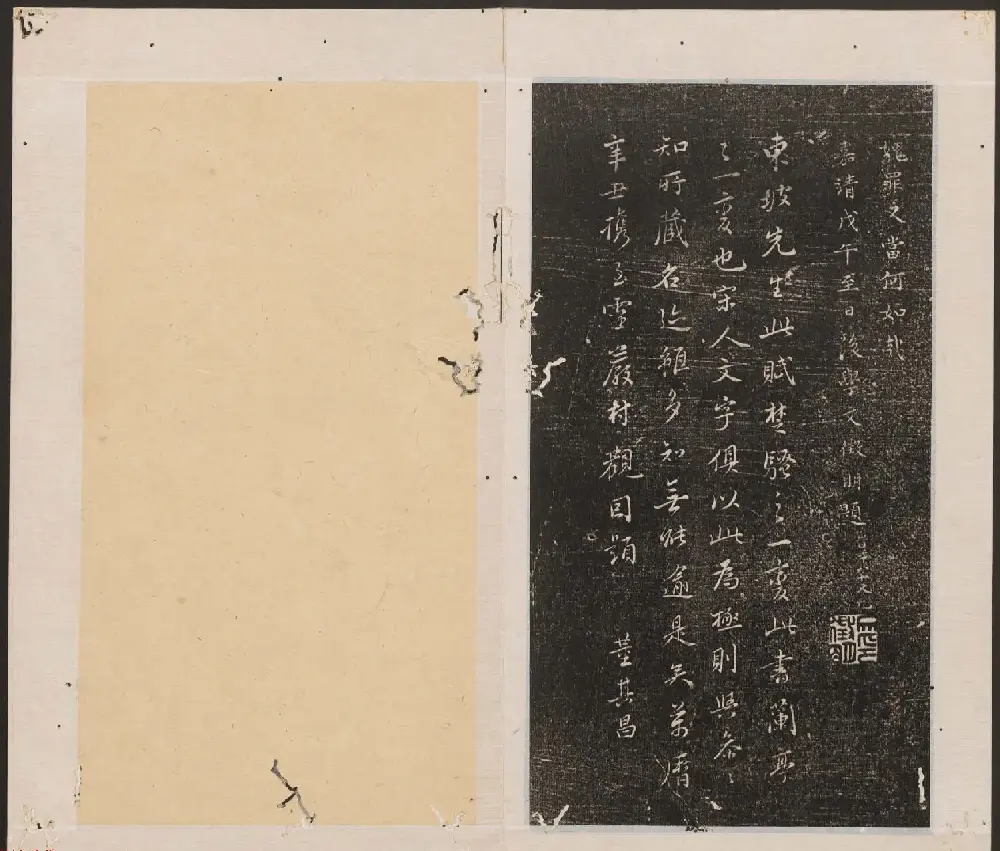 羅文當何如哉
嘉靖戊午至日後學文徵明題時年八十九
東坡先生此賦楚騷之一變此書蘭亭
之一變也宋人文字俱以此為極則與參參
知所藏名迹雖多知無能逾是矣萬曆
辛丑攜至靈巖村觀因題 董其昌